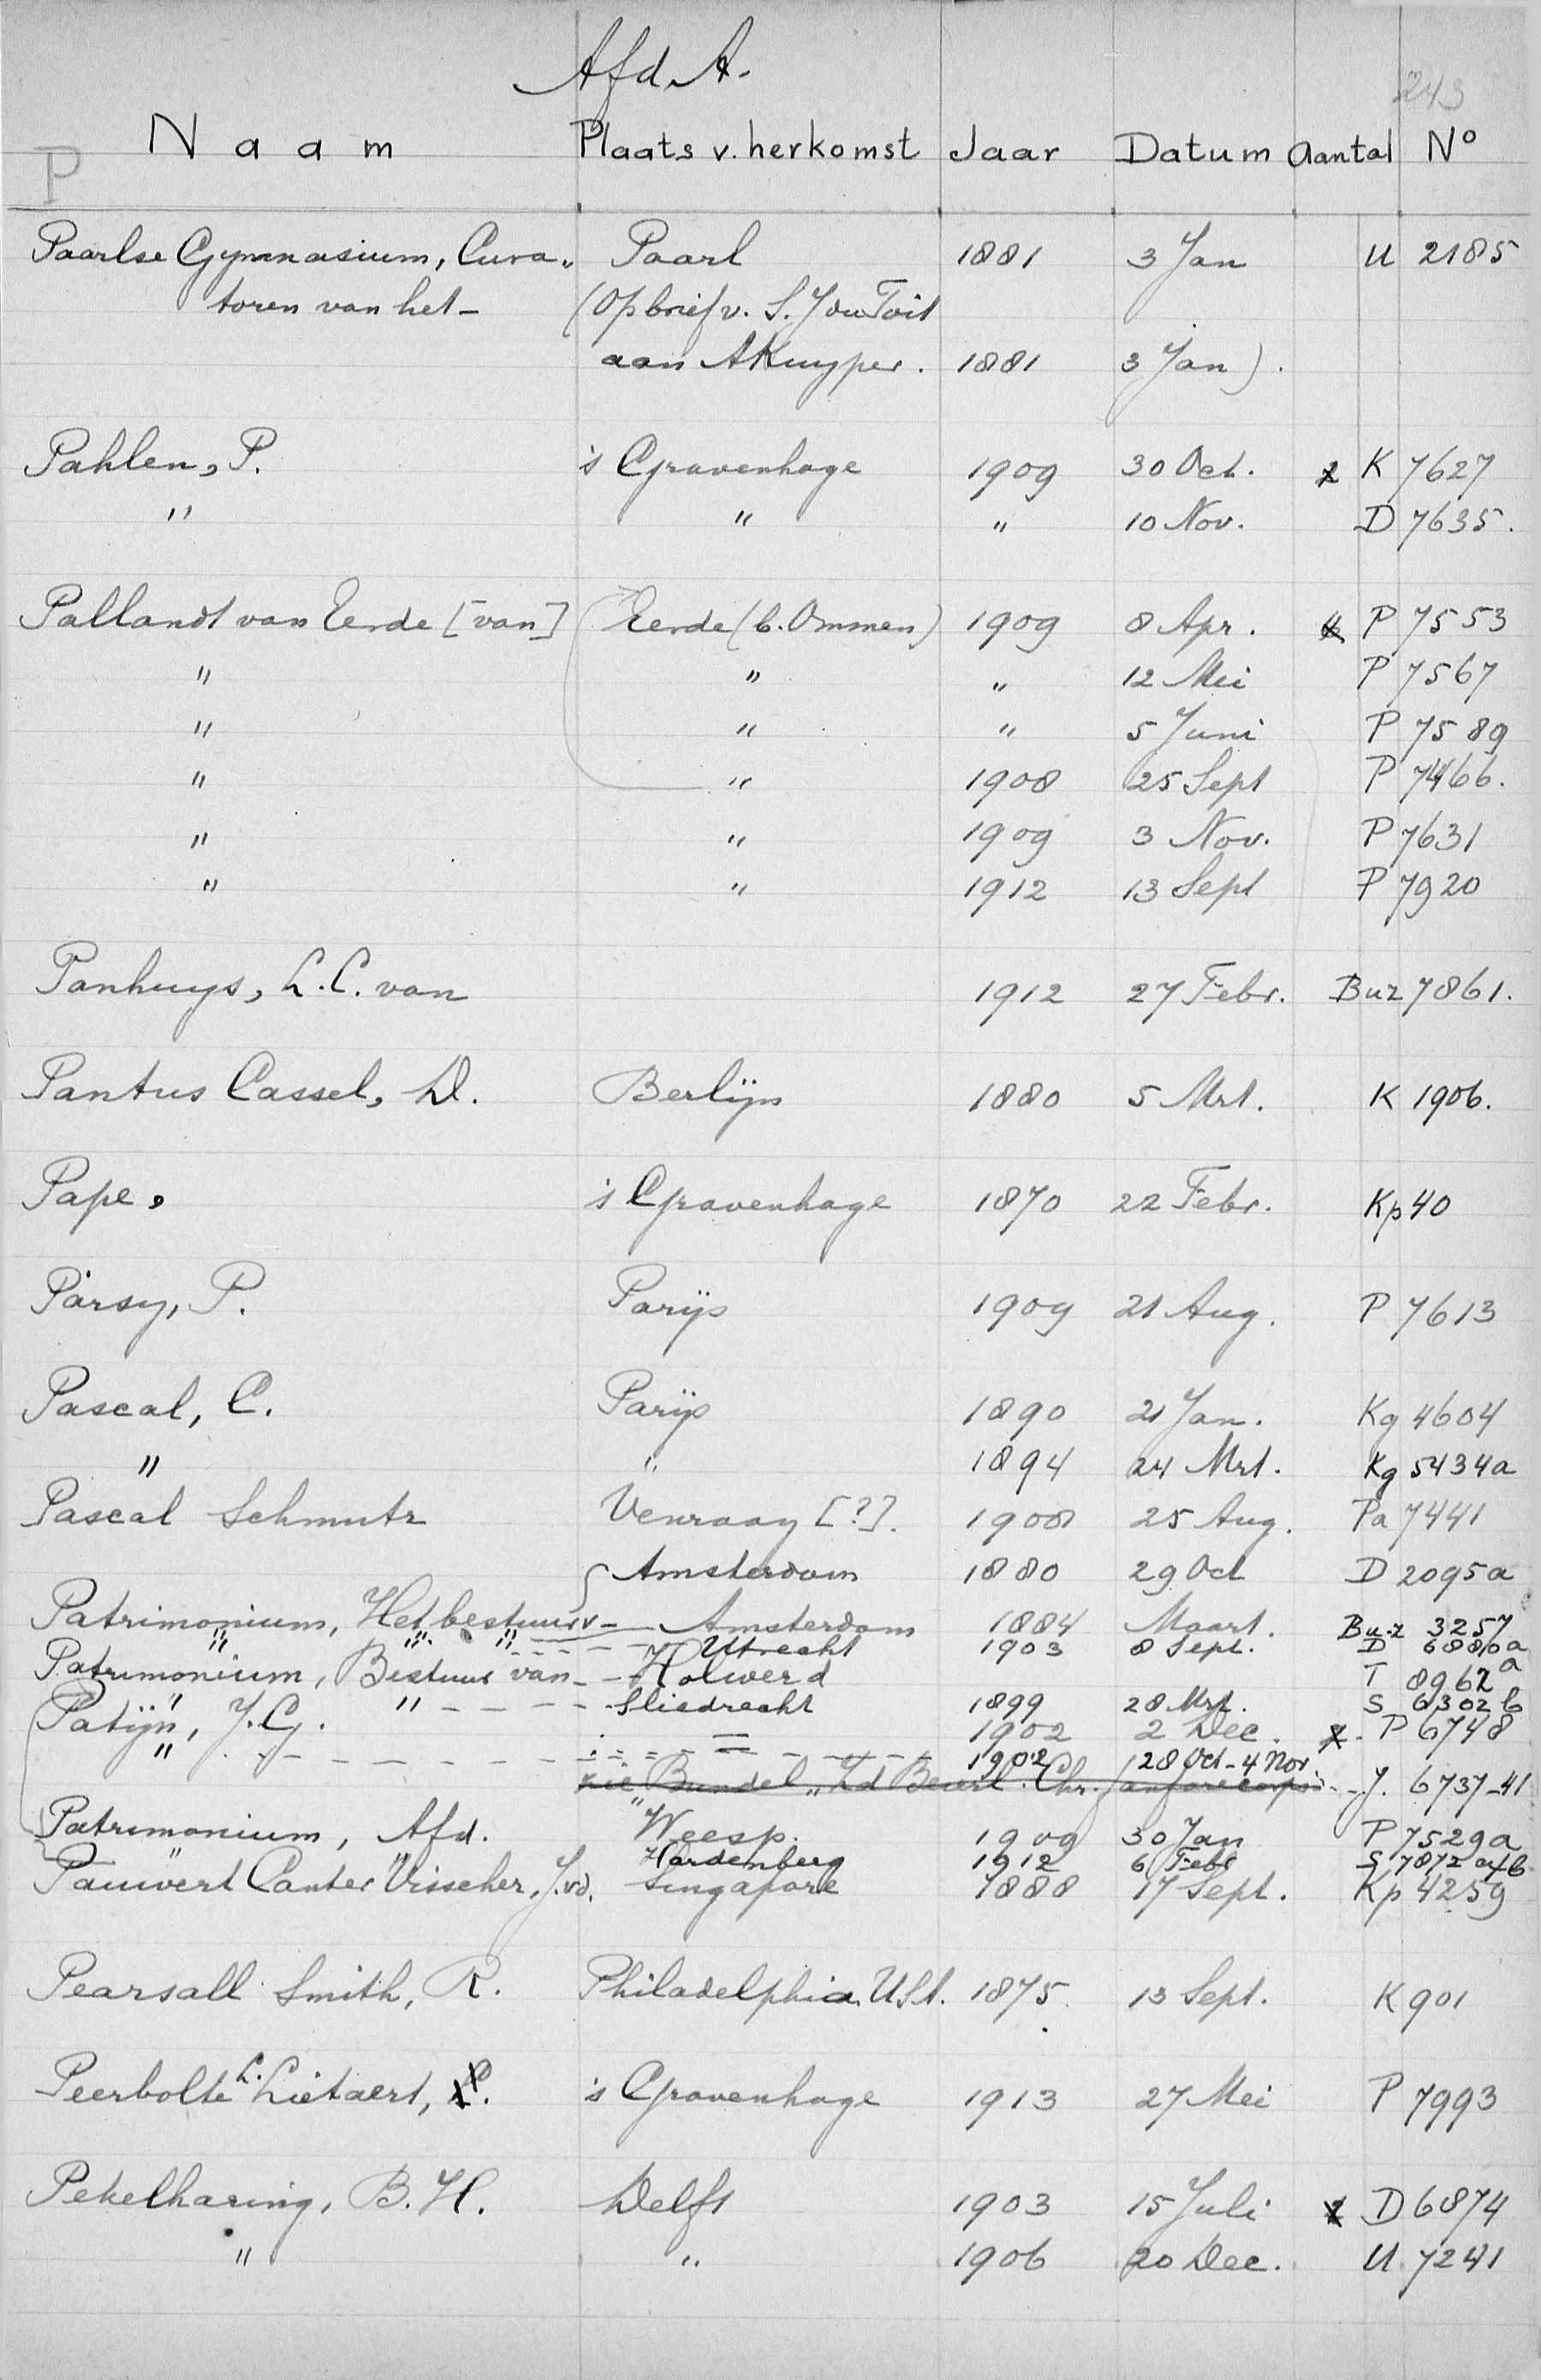 Afd. A.
243
P
Naam Plaats v. herkomst Jaar Datum Aantal No
Paarlse Gymnasium, Cura„ Paarl 1881 3 Jan U 2185
toren van het- (Op brief v. S. J du Toit
aan A Kuyper. 1881 3 Jan).
Pahlen, P. 's Gravenhage 1909 30 Oct. 2 K 7627
" " " 10 Nov. D 7635.
Pallandt van Eerde [van] Eerde (b. Ommen) 1909 8 Apr. P 7553
" " " 12 Mei P 7567
" " " 5 Juni P 7589
" " 1908 25 Sept P 7466.
" " 1909 3 Nov. P 7631
" " 1912 13 Sept P 7920
Panhuys, L. C. van 1912 27 Febr. Buz 7861.
Pantus Cassel, D. Berlijn 1880 5 Mrt. K 1906.
Pape, 's Gravenhage 1870 22 Febr. Kp 40
Parsy, P. Parijs 1909 21 Aug. P 7613
Pascal, C. Parijs 1890 21 Jan. Kg 4604
" " 1894 24 Mrt. Kg 5434a
Pascal Schmutz Venraay [?]. 1908 25 Aug. Pa 7441
Amsterdam 1880 29 Oct D 2095a
Patrimonium, Het bestuur v- Amsterdam 1884 Maart. Buz 3257
" " " Utrecht 1903 8 Sept. D 6880a
Patrimonium, Bestuur van - - Holwerd T 8962a
" " - - - Sliedrecht 1899 28 Mrt. S 6302b
Patijn, J. G. = 1902 2 Dec. P 6748
" 1902 28 Oct - 4 Nov J. 6737-41
zie Bundel „Ld Beverl. Chr. fanfarecorps
Patrimonium, Afd. Weesp. 1909 30 Jan P 7529a
" " Hardenberg 1912 6 Febr S 7872 a+b
Pauwert Canter Visscher, J. vd. Singapore 1888 17 Sept. Kp 4259
Pearsall Smith, R. Philadelphia USt. 1875 13 Sept. K 901
Peerbolte L. Lietaert, 's Gravenhage 1913 27 Mei P 7993
Pekelharing, B. H. Delft 1903 15 Juli 2 D 6874
" " 1906 20 Dec. U 7241